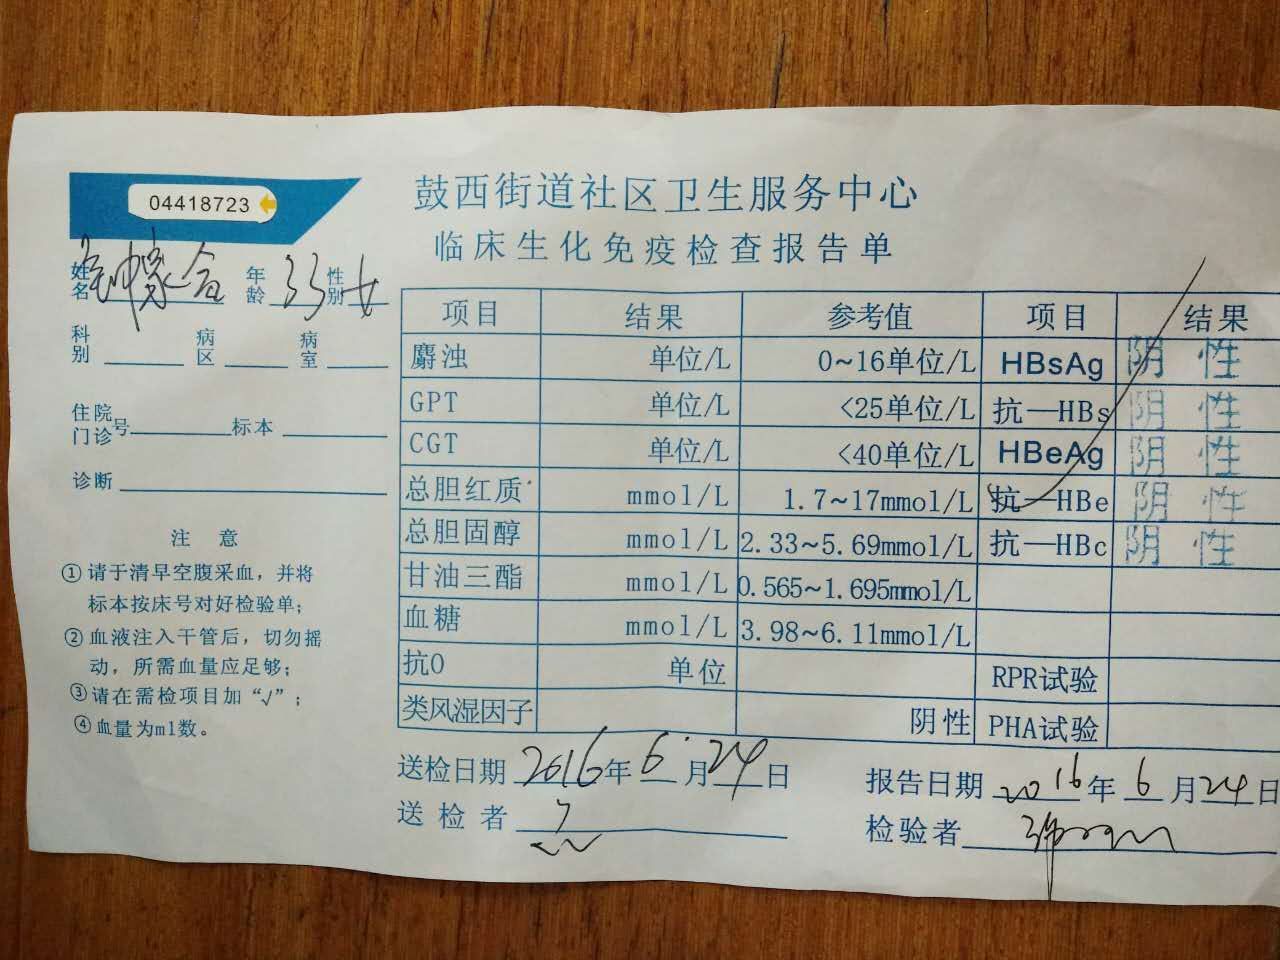 04418723
鼓西街道社区卫生服务中心
临床生化免疫检查报告单
姓名 年龄 33 性别 女
科别 病区 病室
住院门诊号 标本
诊断
注意
①请于清早空腹采血，并将
标本按床号对好检验单；
②血液注入干管后，切勿摇
动，所需血量应足够；
③请在需检项目加“√”；
④血量为ml数。
项目 结果 参考值 项目 结果
麝浊 单位/L 0~16单位/L HBsAg 阴性
GPT 单位/L <25单位/L 抗—HBs 阴性
CGT 单位/L <40单位/L HBeAg 阴性
总胆红质 mmol/L 1.7~17mmol/L 抗—HBe 阴性
总胆固醇 mmol/L 2.33~5.69mmol/L 抗—HBc 阴性
甘油三酯 mmol/L 0.565~1.695mmol/L
血糖 mmol/L 3.98~6.11mmol/L
抗O 单位 RPR试验
类风湿因子 阴性 PHA试验
送检日期 2016年6月24日 报告日期 2016年6月24日
送检者 检验者